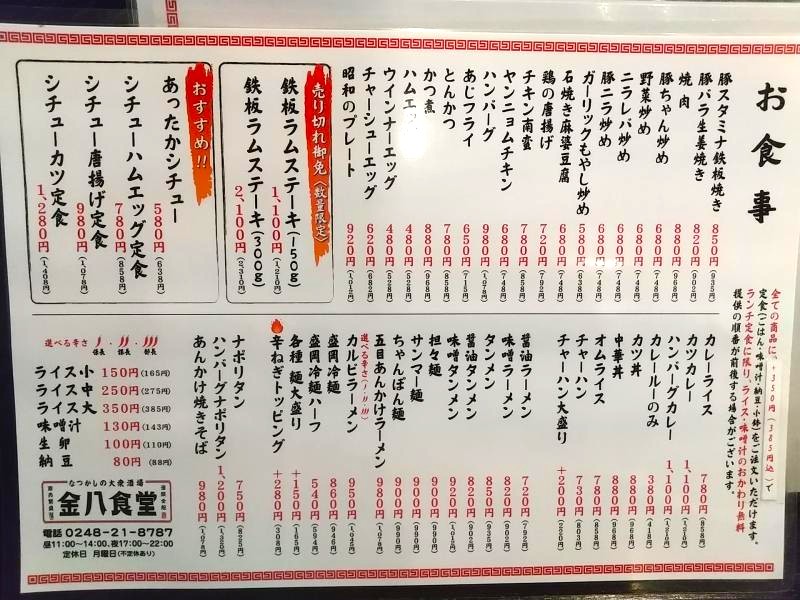 お食事
全ての商品に、+350円(385円込)で
定食(ごはん・味噌汁・納豆・小鉢)をご注文いただけます。
ランチ定食に限り、ライス・味噌汁のおかわり無料
提供の順番が前後する場合がございます。
豚スタミナ鉄板焼き 850円(935円)
豚バラ生姜焼き 820円(902円)
焼肉 880円(968円)
豚ちゃん炒め 680円(748円)
野菜炒め 680円(748円)
ニラレバ炒め 680円(748円)
豚ニラ炒め 680円(748円)
ガーリックもやし炒め 580円(638円)
石焼き麻婆豆腐 680円(748円)
鶏の唐揚げ 720円(792円)
チキン南蛮 780円
ヤンニョムチキン 680円(748円)
ハンバーグ 980円(1,078円)
あじフライ 650円(715円)
とんかつ 780円(858円)
かつ煮 880円(968円)
ハムエッグ 480円(528円)
ウインナーエッグ 480円(528円)
チャーシューエッグ 620円(682円)
昭和のプレート 920円(1,012円)
売り切れ御免(数量限定)
鉄板ラムステーキ(150g) 1,100円(1,210円)
鉄板ラムステーキ(300g) 2,100円(2,310円)
おすすめ!!
あったかシチュー 580円(638円)
シチューハムエッグ定食 780円(858円)
シチュー唐揚げ定食 980円(1,078円)
シチューカツ定食 1,280円(1,408円)
カレーライス 780円(858円)
カツカレー 1,100円(1,210円)
ハンバーグカレー 1,100円(1,210円)
カレールーのみ 380円(418円)
カツ丼 880円(968円)
中華丼 880円(968円)
オムライス 780円(858円)
チャーハン 730円(803円)
チャーハン大盛り +200円(220円)
醤油ラーメン 720円(792円)
味噌ラーメン 820円(902円)
タンメン 850円(935円)
醤油タンメン
味噌タンメン 920円(1,012円)
担々麺
サンマー麺 900円(990円)
ちゃんぽん麺 900円(990円)
五目あんかけラーメン 980円(1,078円)
選べる辛さ(!・!!・!!!)
カルビラーメン 950円(1,045円)
盛岡冷麺 860円(946円)
盛岡冷麺ハーフ 540円(594円)
各種麺大盛り +150円(165円)
辛ねぎトッピング +280円(308円)
ナポリタン 750円(825円)
ハンバーグナポリタン 1,200円(1,320円)
あんかけ焼きそば 980円(1,078円)
選べる辛さ
係長・課長・部長
ライス小 150円(165円)
ライス中 250円(275円)
ライス大 350円(385円)
味噌汁 130円(143円)
生卵 100円(110円)
納豆 80円(88円)
なつかしの大衆酒場
金八食堂
電話 0248-21-8787
昼11:00〜14:00、夜17:00〜22:00
定休日 月曜日(不定休あり)